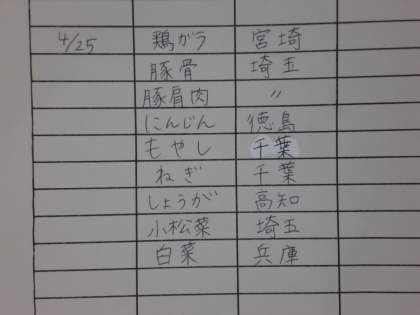 4/25 鶏ガラ 宮崎
豚骨 埼玉
豚肩肉 〃
にんじん 徳島
もやし 千葉
ねぎ 千葉
しょうが 高知
小松菜 埼玉
白菜 兵庫